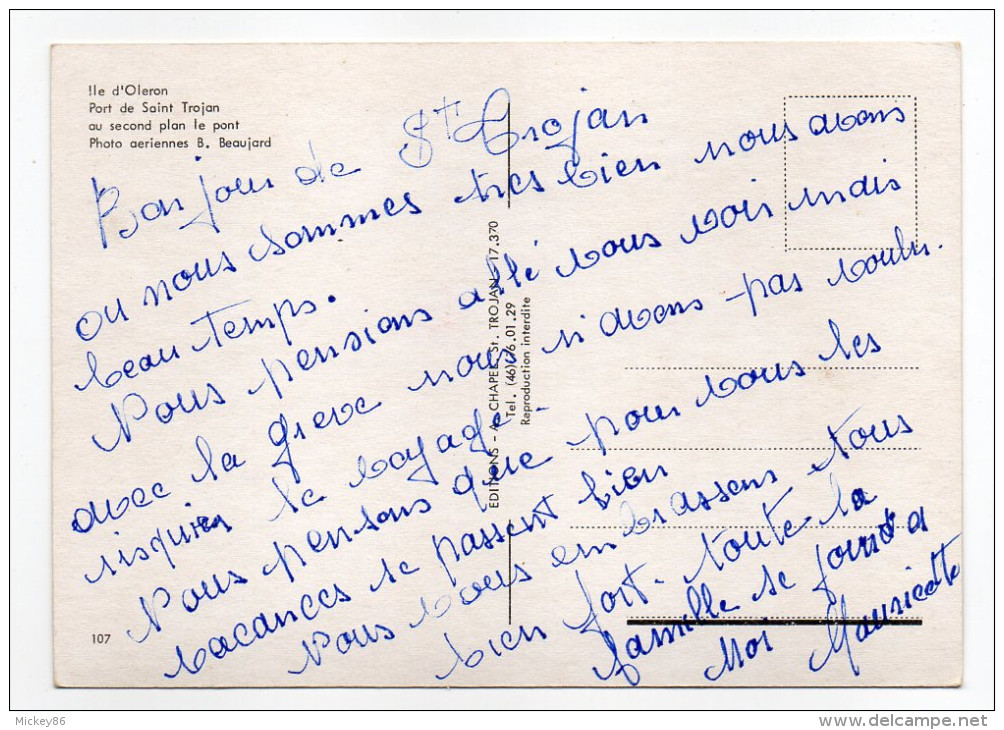 Ile d'Oleron
Port de Saint Trojan
au second plan le pont
Photo aeriennes B. Beaujard
Bonjour de St Trojan
ou nous sommes tres bien nous avons
beau temps.
Nous pensions allé vous voir mais
avec la greve nous n'avons pas voulu.
risquer le voyage.
Nous pensons que pour vous les
vacances se passent bien
Nous vous embrassons tous
bien fort. toute la
famille se joint a
Moi Mauricette
EDITIONS - A. CHAPEL St. TROJAN - 17.370
Tel. (46) 76.01.29
Reproduction interdite
107
Mickey86
www.delcampe.net